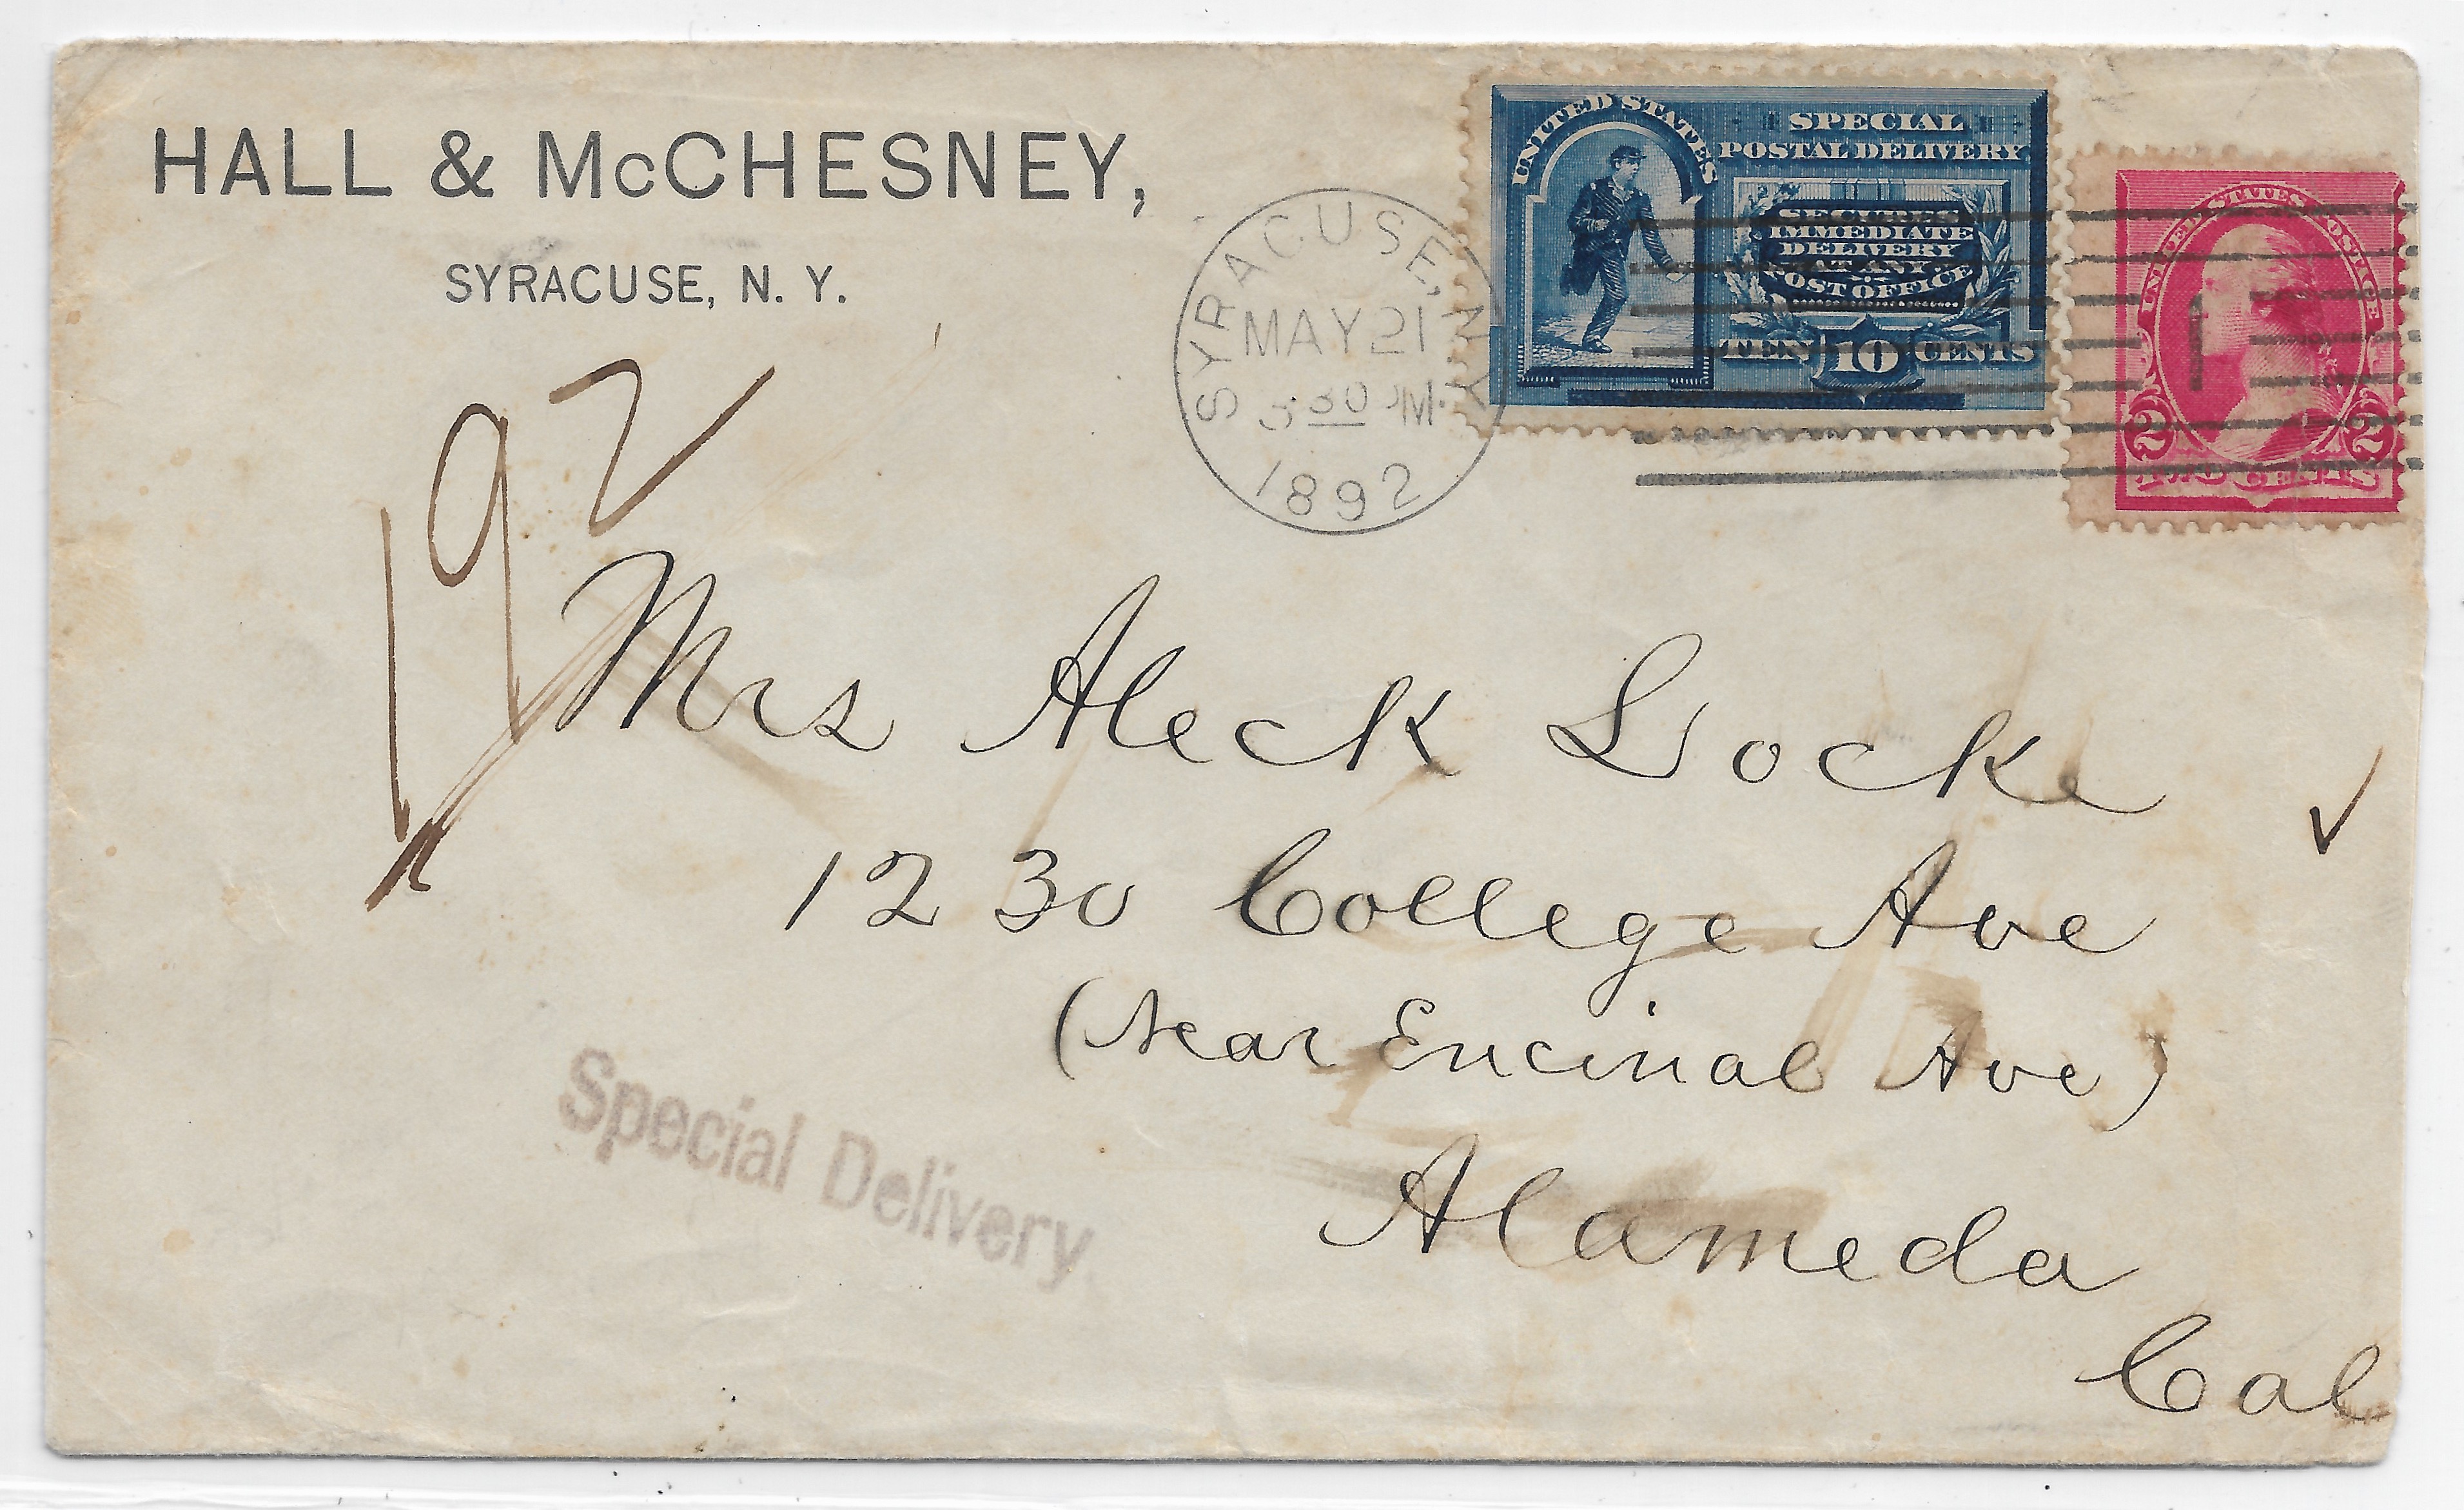 HALL & McCHESNEY,
SYRACUSE, N. Y.
SYRACUSE, N.Y.
MAY 21
30 PM
1892
UNITED STATES
SPECIAL
POSTAL DELIVERY
SECURES
IMMEDIATE
DELIVERY
AT ANY
POST OFFICE
TEN 10 CENTS
UNITED STATES POSTAGE
1
2 2
TWO CENTS
192
Mrs Aleck Locke
1230 College Ave
(Near Encinal Ave)
Alameda
Cal
Special Delivery